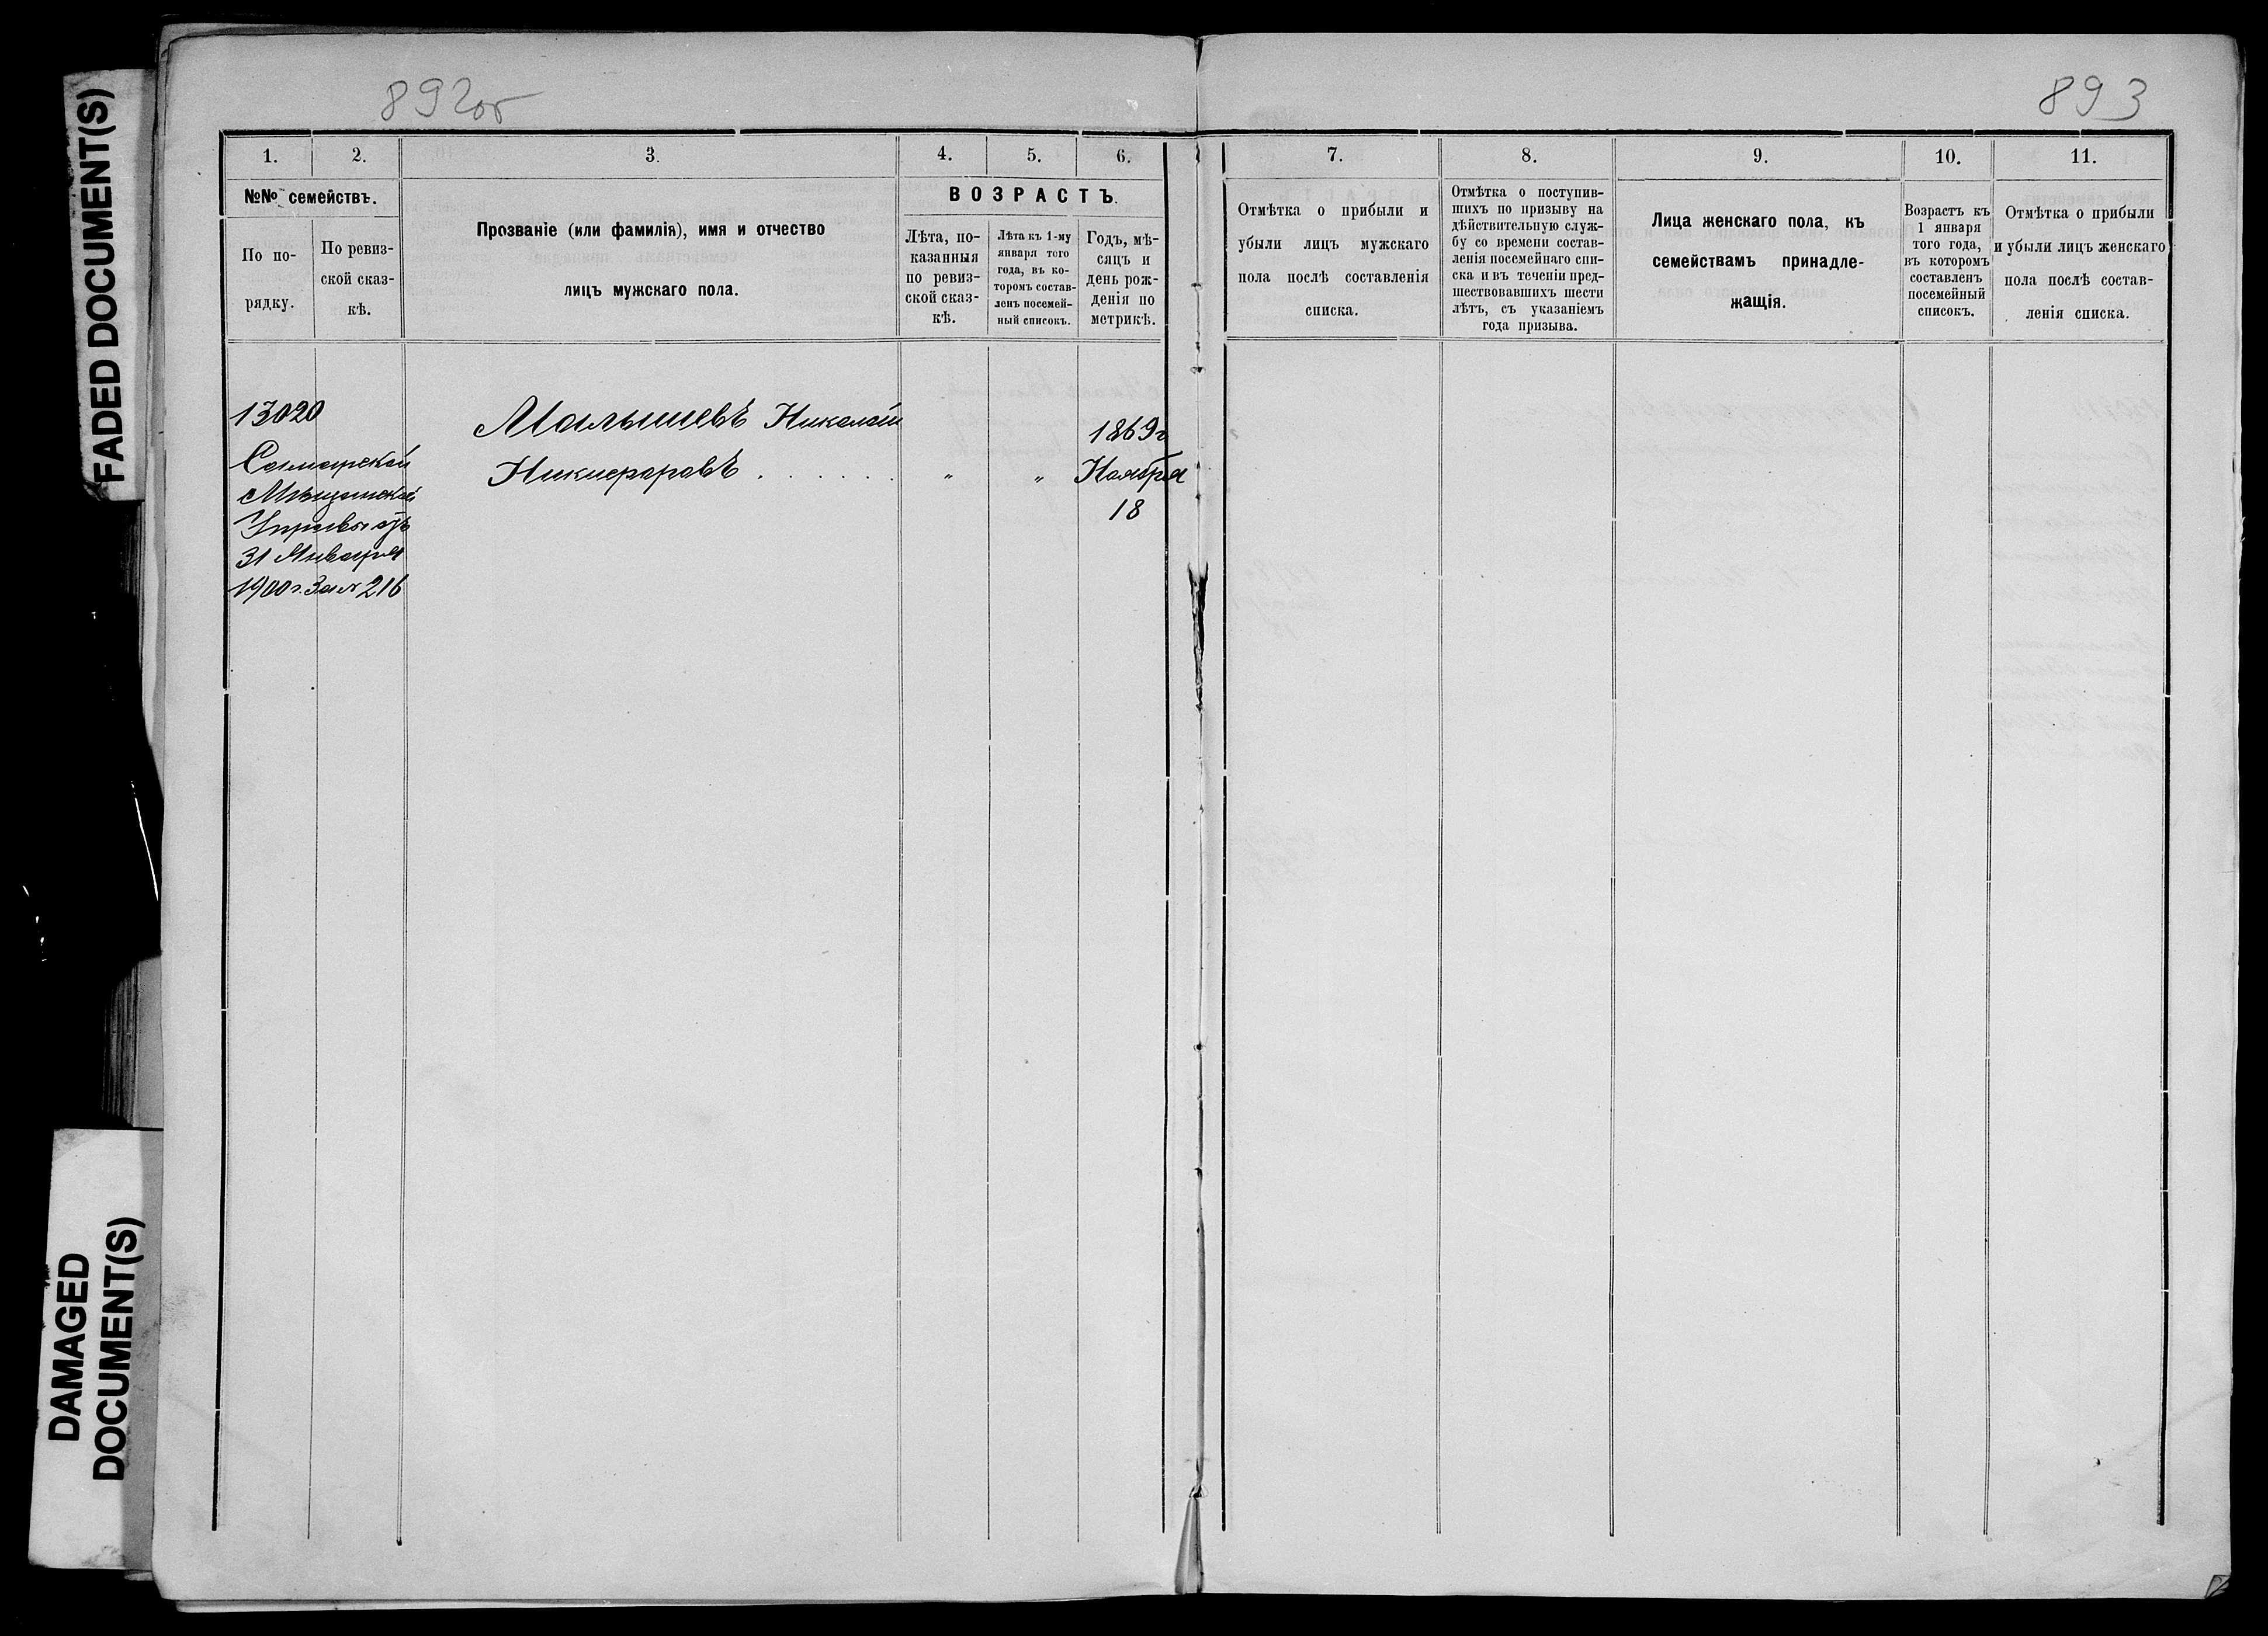 FADED DOCUMENT(S)
DAMAGED
DOCUMENT(S)
892об
893
1.
2.
3.
4.
5.
6.
№№ семействъ.
По по-
рядку.
По ревиз-
ской сказ-
кѣ.
Прозваніе (или фамилія), имя и отчество
лицъ мужскаго пола.
ВОЗРАСТЪ.
Лѣта, по-
казанныя
по ревиз-
ской сказ-
кѣ.
Лѣта къ 1-му
января того
года, въ ко-
торомъ состав-
ленъ посемей-
ный списокъ.
Годъ, мѣ-
сяцъ и
день рож-
денія по
метрикѣ.
13020
Самарской
Мѣщанской
Управы отъ
31 Января
1900 г. За № 216
Малышевъ Николай
Никифоровъ . . . . . .
„
„
1869 г
Ноября
18
7.
8.
9.
10.
11.
Отмѣтка о прибыли и
убыли лицъ мужскаго
пола послѣ составленія
списка.
Отмѣтка о поступив-
шихъ по призыву на
дѣйствительную служ-
бу со времени состав-
ленія посемейнаго спи-
ска и въ теченіи пред-
шествовавшихъ шести
лѣтъ, съ указаніемъ
года призыва.
Лица женскаго пола, къ
семействамъ принадле-
жащія.
Возрастъ къ
1 января
того года,
въ которомъ
составленъ
посемейный
списокъ.
Отмѣтка о прибыли
и убыли лицъ женскаго
пола послѣ состав-
ленія списка.